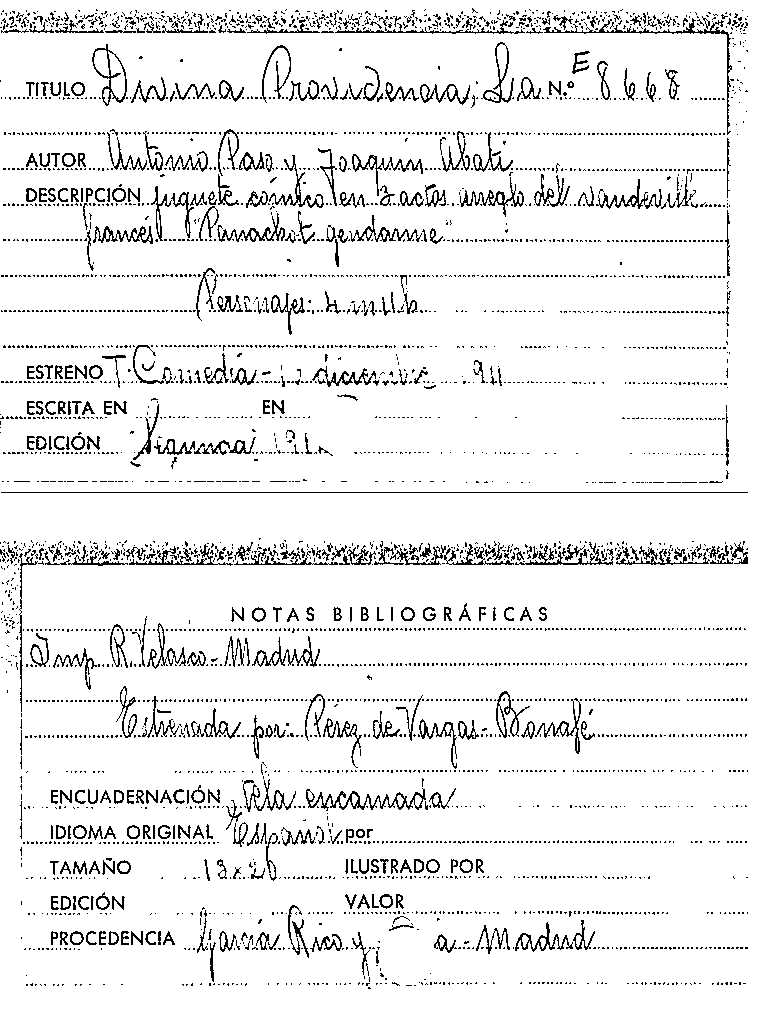 TITULO Divina Providencia, La N.º E 8668
AUTOR Antonio Paso y Joaquín Abati
DESCRIPCIÓN juguete cómico en 3 actos arreglo del vaudeville
francés "Panachot gendarme"
Personajes: 4 m 11 h.
ESTRENO T. Comedia - diciembre 911
ESCRITA EN EN
EDICIÓN Segunda
NOTAS BIBLIOGRÁFICAS
Imp. R. Velasco - Madrid
Estrenada por: Pérez de Vargas - Bonafé
ENCUADERNACIÓN Tela encarnada
IDIOMA ORIGINAL Español por
TAMAÑO 13x20 ILUSTRADO POR
EDICIÓN VALOR
PROCEDENCIA García Rico y a - Madrid